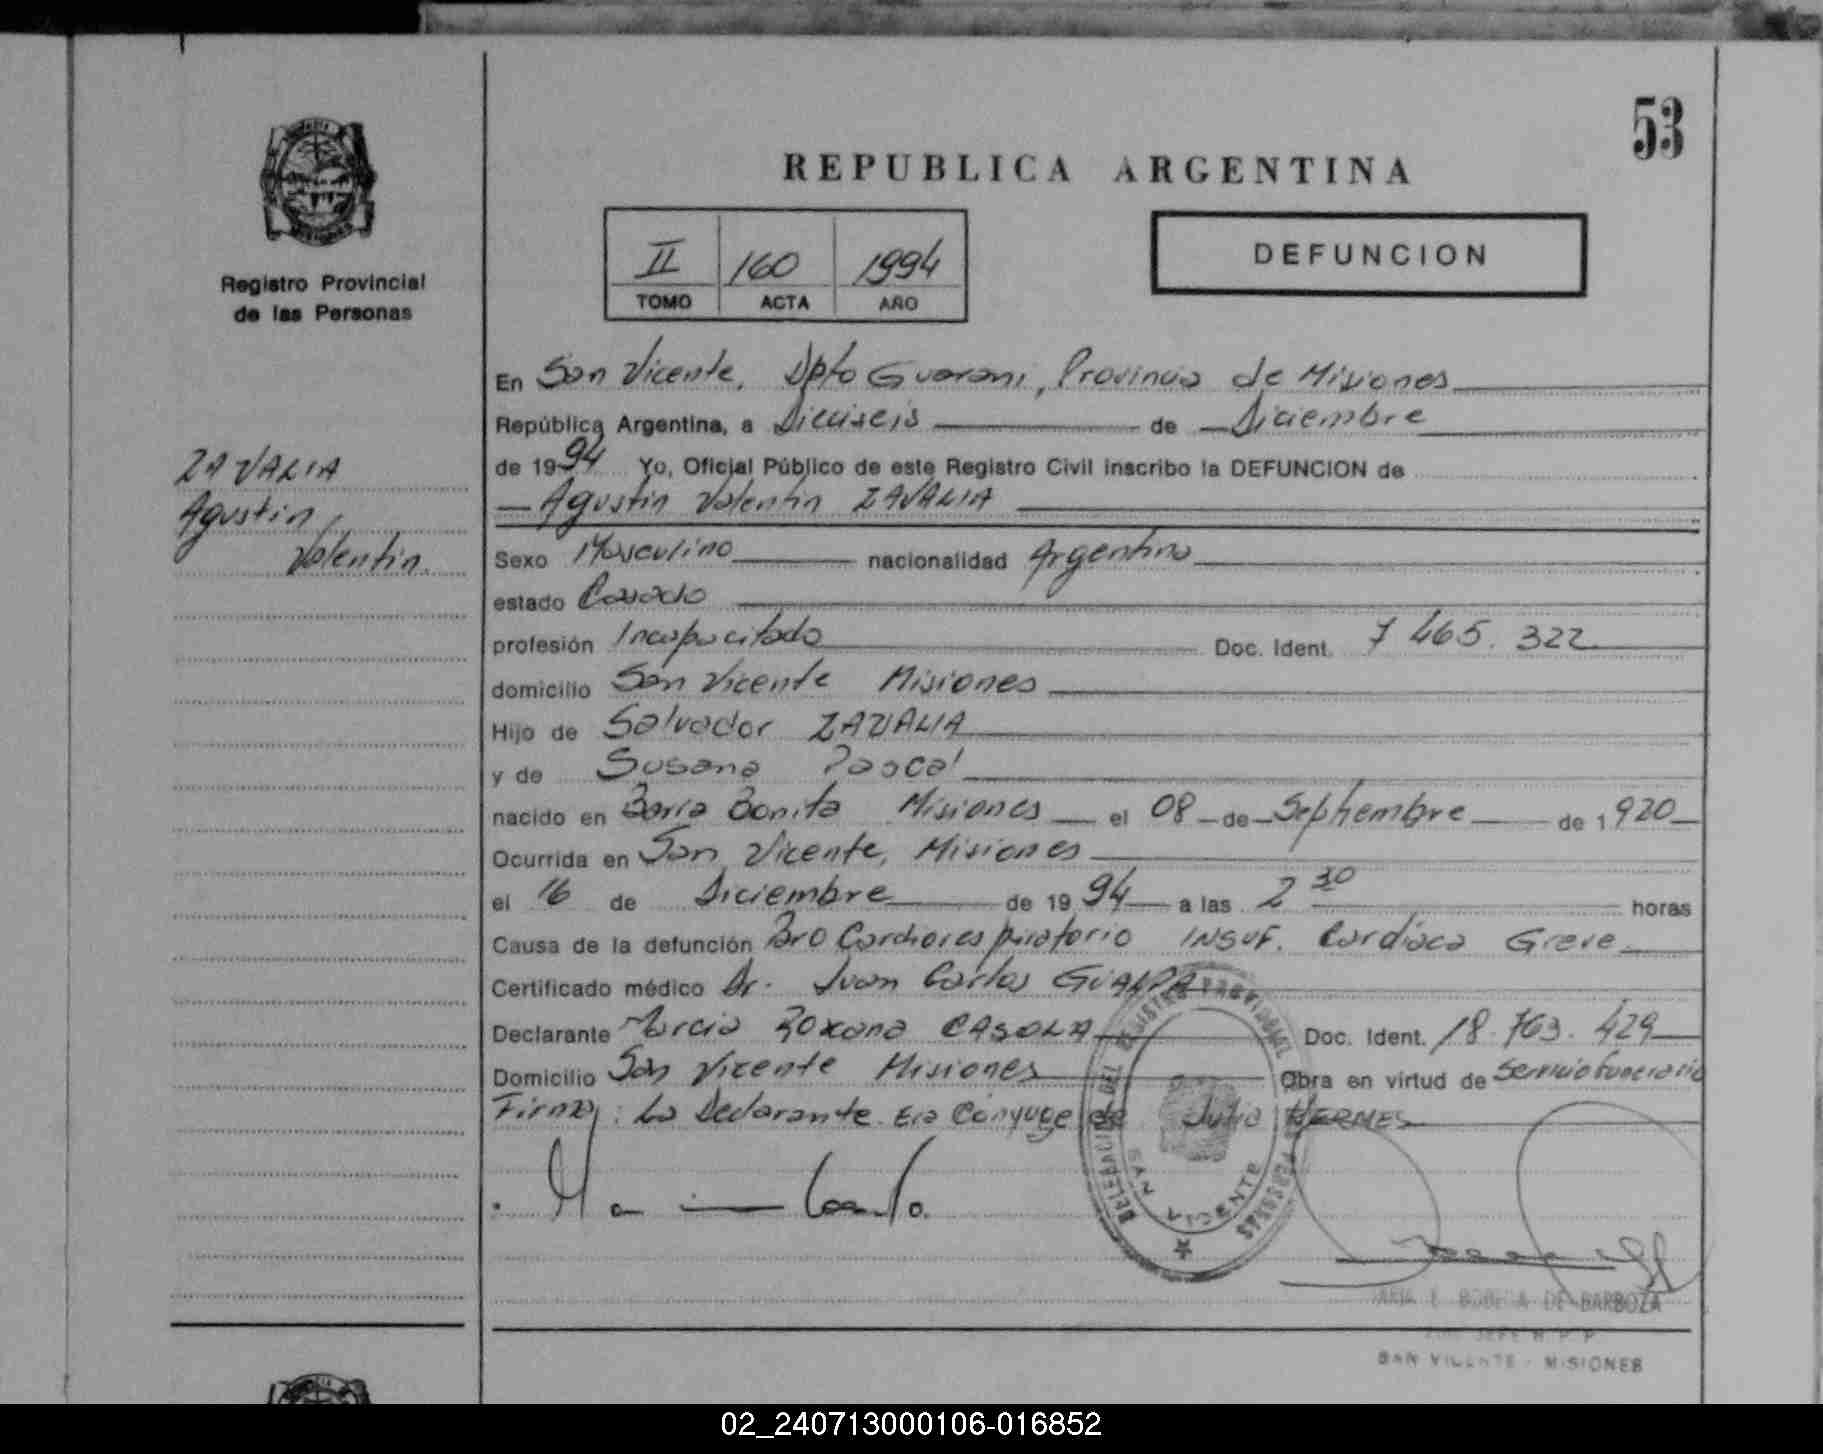 53
REPUBLICA ARGENTINA
II 160 1994
TOMO ACTA AÑO
DEFUNCION
Registro Provincial
de las Personas
ZAVALIA
Agustin,
Valentin.
En San Vicente, Dpto Guarani, Provincia de Misiones
República Argentina, a Dieciseis de Diciembre
de 1994 Yo, Oficial Público de este Registro Civil inscribo la DEFUNCION de
Agustin Valentin ZAVALIA
Sexo Masculino nacionalidad Argentina
estado Casado
profesión Incapacitado Doc. Ident. 7 465. 322
domicilio San Vicente Misiones
Hijo de Salvador ZAVALIA
y de Susana Pascal
nacido en Barra Bonita Misiones el 08 de Septiembre de 1920
Ocurrida en San Vicente, Misiones
el 16 de Diciembre de 1994 a las 2 30 horas
Causa de la defunción Paro Cardiorespiratorio INSUF. Cardiaca Greve
Certificado médico Dr. Juan Carlos GIALDA
Declarante Marcia Roxana CASOLA Doc. Ident. 18. 763. 429
Domicilio San Vicente Misiones Obra en virtud de Servicio funerario
Firma: La Declarante. Era Cónyuge de Julia HERMES
DELEGACION DEL REGISTRO PROVINCIAL DE LAS PERSONAS
SAN VICENTE
DE BARBOZA
SAN VICENTE - MISIONES
02_240713000106-016852